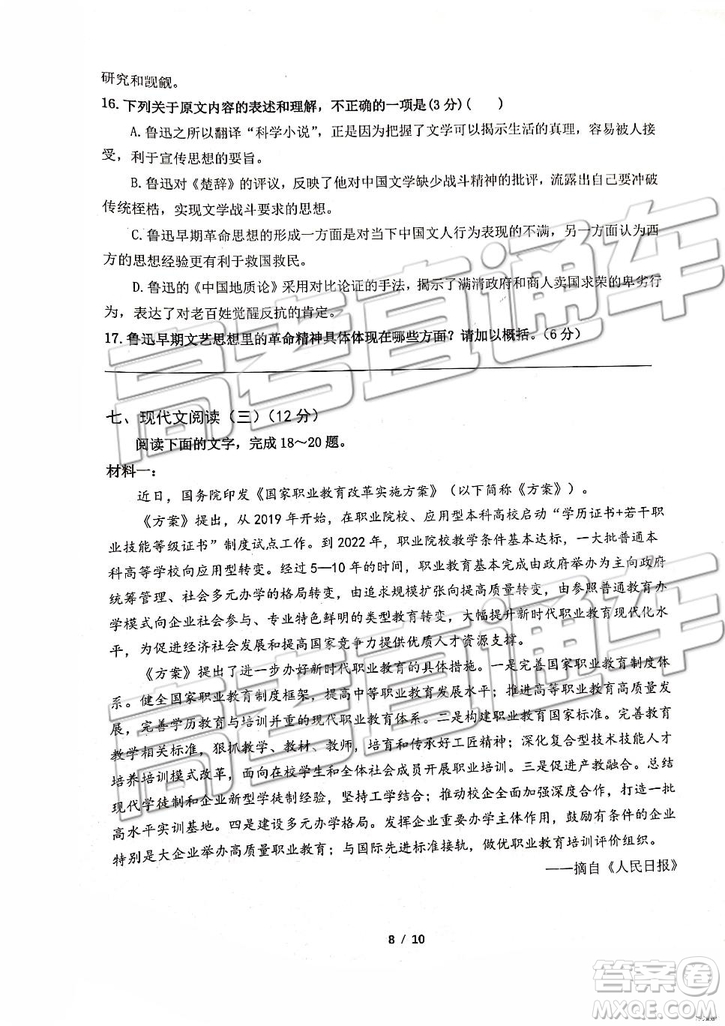 研究和觊觎。
16.下列关于原文内容的表述和理解，不正确的一项是(3分)(　　)
A.鲁迅之所以翻译“科学小说”，正是因为把握了文学可以揭示生活的真理，容易被人接
受，利于宣传思想的要旨。
B.鲁迅对《楚辞》的评议，反映了他对中国文学缺少战斗精神的批评，流露出自己的突破
传统桎梏，实现文学战斗要求的思想。
C.鲁迅早期革命思想的形成一方面是对当下中国文人行为表现的不满，另一方面认为西方
的思想经验更有利于救国救民。
D.鲁迅的《中国地质论》采用对比论证的手法，揭示了满清政府和商人卖国求荣的卑劣行
为，表达了对老百姓觉醒反抗的肯定。
17.鲁迅早期文艺思想里的革命精神具体体现在哪些方面？请加以概括。(6分)
七、现代文阅读（三）（12分）
阅读下面的文字，完成18～20题。
材料一：
近日，国务院印发《国家职业教育改革实施方案》（以下简称《方案》）。
《方案》提出，从2019年开始，在职业院校、应用型本科高校启动“学历证书+若干职
业技能等级证书”制度试点工作。到2022年，职业院校教学条件基本达标，一大批普通本
科高等学校向应用型转变。经过5—10年的时间，职业教育基本完成由政府举办为主向政府
统筹管理、社会多元办学的格局转变，由追求规模扩张向提高质量转变，由参照普通教育办
学模式向企业社会参与、专业特色鲜明的类型教育转变，大幅提升新时代职业教育现代化水
平，为促进经济社会发展和提高国家竞争力提供优质人才资源支撑。
《方案》提出了进一步办好新时代职业教育的具体措施。一是完善国家职业教育制度体
系。健全国家职业教育制度框架，提高中等职业教育发展水平；推进高等职业教育高质量发
展，完善学历教育与培训并重的现代职业教育体系。二是构建职业教育国家标准。完善教育
教学相关标准，狠抓教学、教材、教师，培育和传承好工匠精神；深化复合型技术技能人才
培养培训模式改革，面向在校学生和全体社会成员开展职业培训。三是促进产教融合。总结
现代学徒制和企业新型学徒制经验，坚持工学结合；推动校企全面加强深度合作，打造一批
高水平实训基地。四是建设多元办学格局。发挥企业重要办学主体作用，鼓励有条件的企业
特别是大企业举办高质量职业教育；与国际先进标准接轨，做优职业教育培训评价组织。
——摘自《人民日报》
8 / 10
高考直通车
答案圈
MXQE.COM